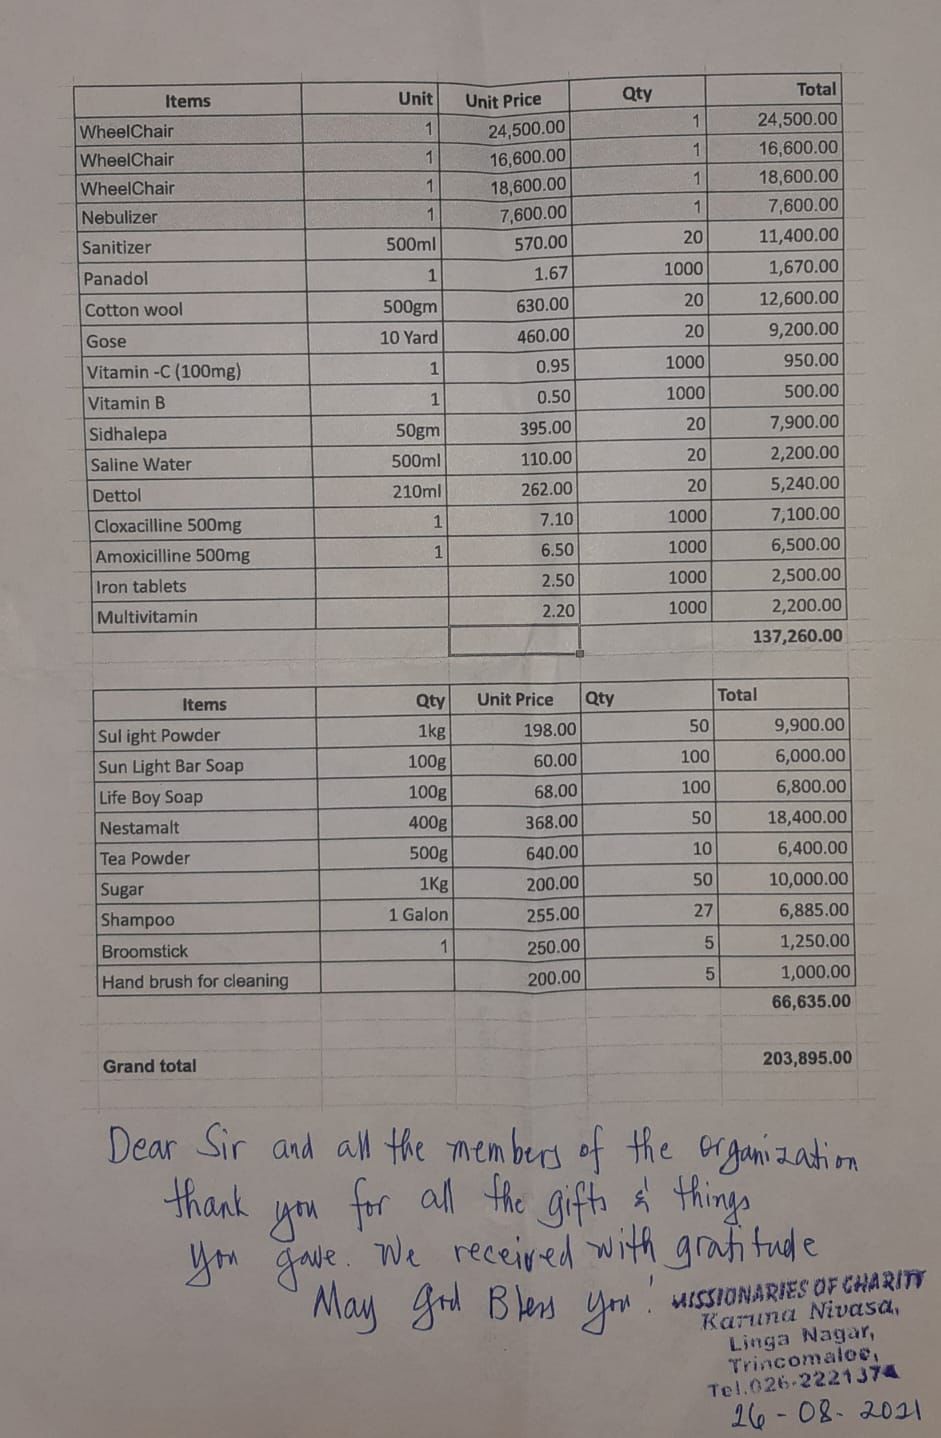 Items Unit Unit Price Qty Total
WheelChair 1 24,500.00 1 24,500.00
WheelChair 1 16,600.00 1 16,600.00
WheelChair 1 18,600.00 1 18,600.00
Nebulizer 1 7,600.00 1 7,600.00
Sanitizer 500ml 570.00 20 11,400.00
Panadol 1 1.67 1000 1,670.00
Cotton wool 500gm 630.00 20 12,600.00
Gose 10 Yard 460.00 20 9,200.00
Vitamin -C (100mg) 1 0.95 1000 950.00
Vitamin B 1 0.50 1000 500.00
Sidhalepa 50gm 395.00 20 7,900.00
Saline Water 500ml 110.00 20 2,200.00
Dettol 210ml 262.00 20 5,240.00
Cloxacilline 500mg 1 7.10 1000 7,100.00
Amoxicilline 500mg 1 6.50 1000 6,500.00
Iron tablets 2.50 1000 2,500.00
Multivitamin 2.20 1000 2,200.00
137,260.00
Items Qty Unit Price Qty Total
Sul ight Powder 1kg 198.00 50 9,900.00
Sun Light Bar Soap 100g 60.00 100 6,000.00
Life Boy Soap 100g 68.00 100 6,800.00
Nestamalt 400g 368.00 50 18,400.00
Tea Powder 500g 640.00 10 6,400.00
Sugar 1Kg 200.00 50 10,000.00
Shampoo 1 Galon 255.00 27 6,885.00
Broomstick 1 250.00 5 1,250.00
Hand brush for cleaning 200.00 5 1,000.00
66,635.00
Grand total 203,895.00
Dear Sir and all the members of the organization
thank you for all the gifts & things
you gave. We received with gratitude
May God Bless you!
MISSIONARIES OF CHARITY
Karuna Nivasa,
Linga Nagar,
Trincomalee,
Tel.026-2221374
26-08-2021